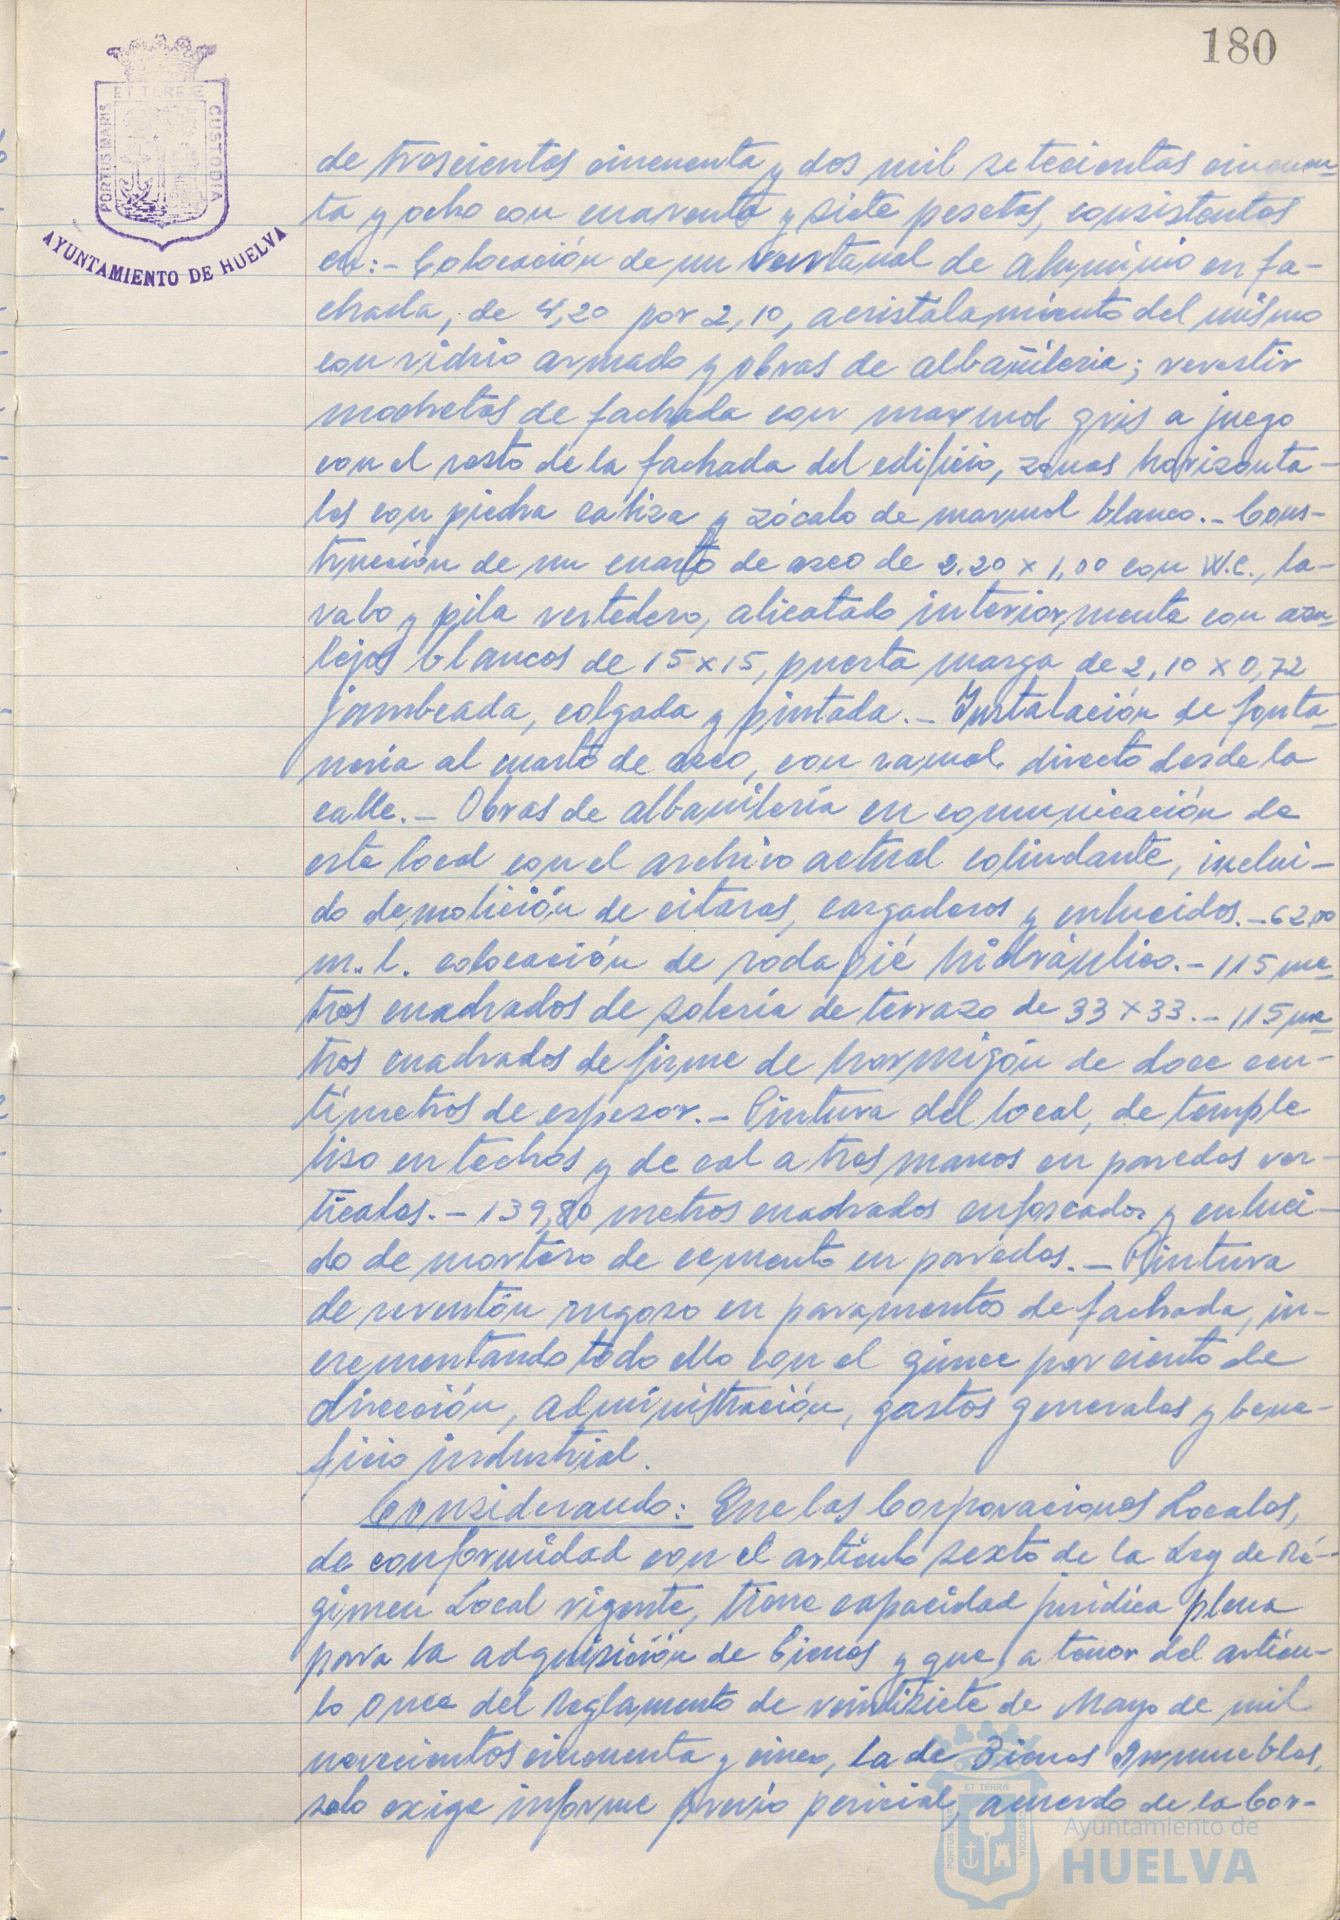 180
ET TERRÆ
PORTUS MARIS
CUSTODIA
AYUNTAMIENTO DE HUELVA
de trescientos cincuenta y dos mil setecientas cincuen-
ta y ocho con cuarenta y siete pesetas, consistentes
en:- Colocación de un ventanal de aluminio en fa-
chada, de 4,20 por 2,10, acristalamiento del mismo
con vidrio armado y obras de albañileria; revestir
mochetas de fachada con marmol gris a juego
con el resto de la fachada del edificio, zonas horizonta-
les con piedra caliza y zócalo de marmol blanco.- Cons-
trucción de un cuarto de aseo de 2.20 x 1,00 con W.C., la-
vabo y pila vertedero, alicatado interiormente con azu-
lejos blancos de 15x15, puerta marga de 2,10 x 0,72
jambeada, colgada y pintada.- Instalación de fonta-
nería al cuarto de aseo, con ramal directo desde la
calle.- Obras de albanilería en comunicación de
este local con el archivo actual colindante, inclui-
do demolición de citaras, cargaderos y enlucidos.- 62,00
m.l. colocación de rodapié hidráulico.- 115 me-
tros cuadrados de solería de terrazo de 33 x 33.- 115 me-
tros cuadrados de firme de hormigón de doce cen-
tímetros de espesor.- Pintura del local, de temple
liso en techos y de cal a tres manos en paredes ver-
ticales.- 139,80 metros cuadrados enfoscados y enluci-
do de mortero de cemento en paredes.- Pintura
de reventón rugoso en paramentos de fachada, in-
crementando todo ello con el quince por ciento de
dirección, administración, gastos generales y bene-
ficio industrial.
Considerando: Que las Corporaciones Locales,
de conformidad con el artículo sexto de la Ley de Ré-
gimen Local vigente, tiene capacidad jurídica plena
para la adquisición de bienes y que, a tenor del artícu-
lo once del Reglamento de veintisiete de Mayo de mil
novecientos cincuenta y cinco, la de Bienes Inmuebles,
solo exige informe previo pericial, acuerdo de la Cor-
ET TERRÆ
PORTUS
CUSTODIA
Ayuntamiento de
HUELVA